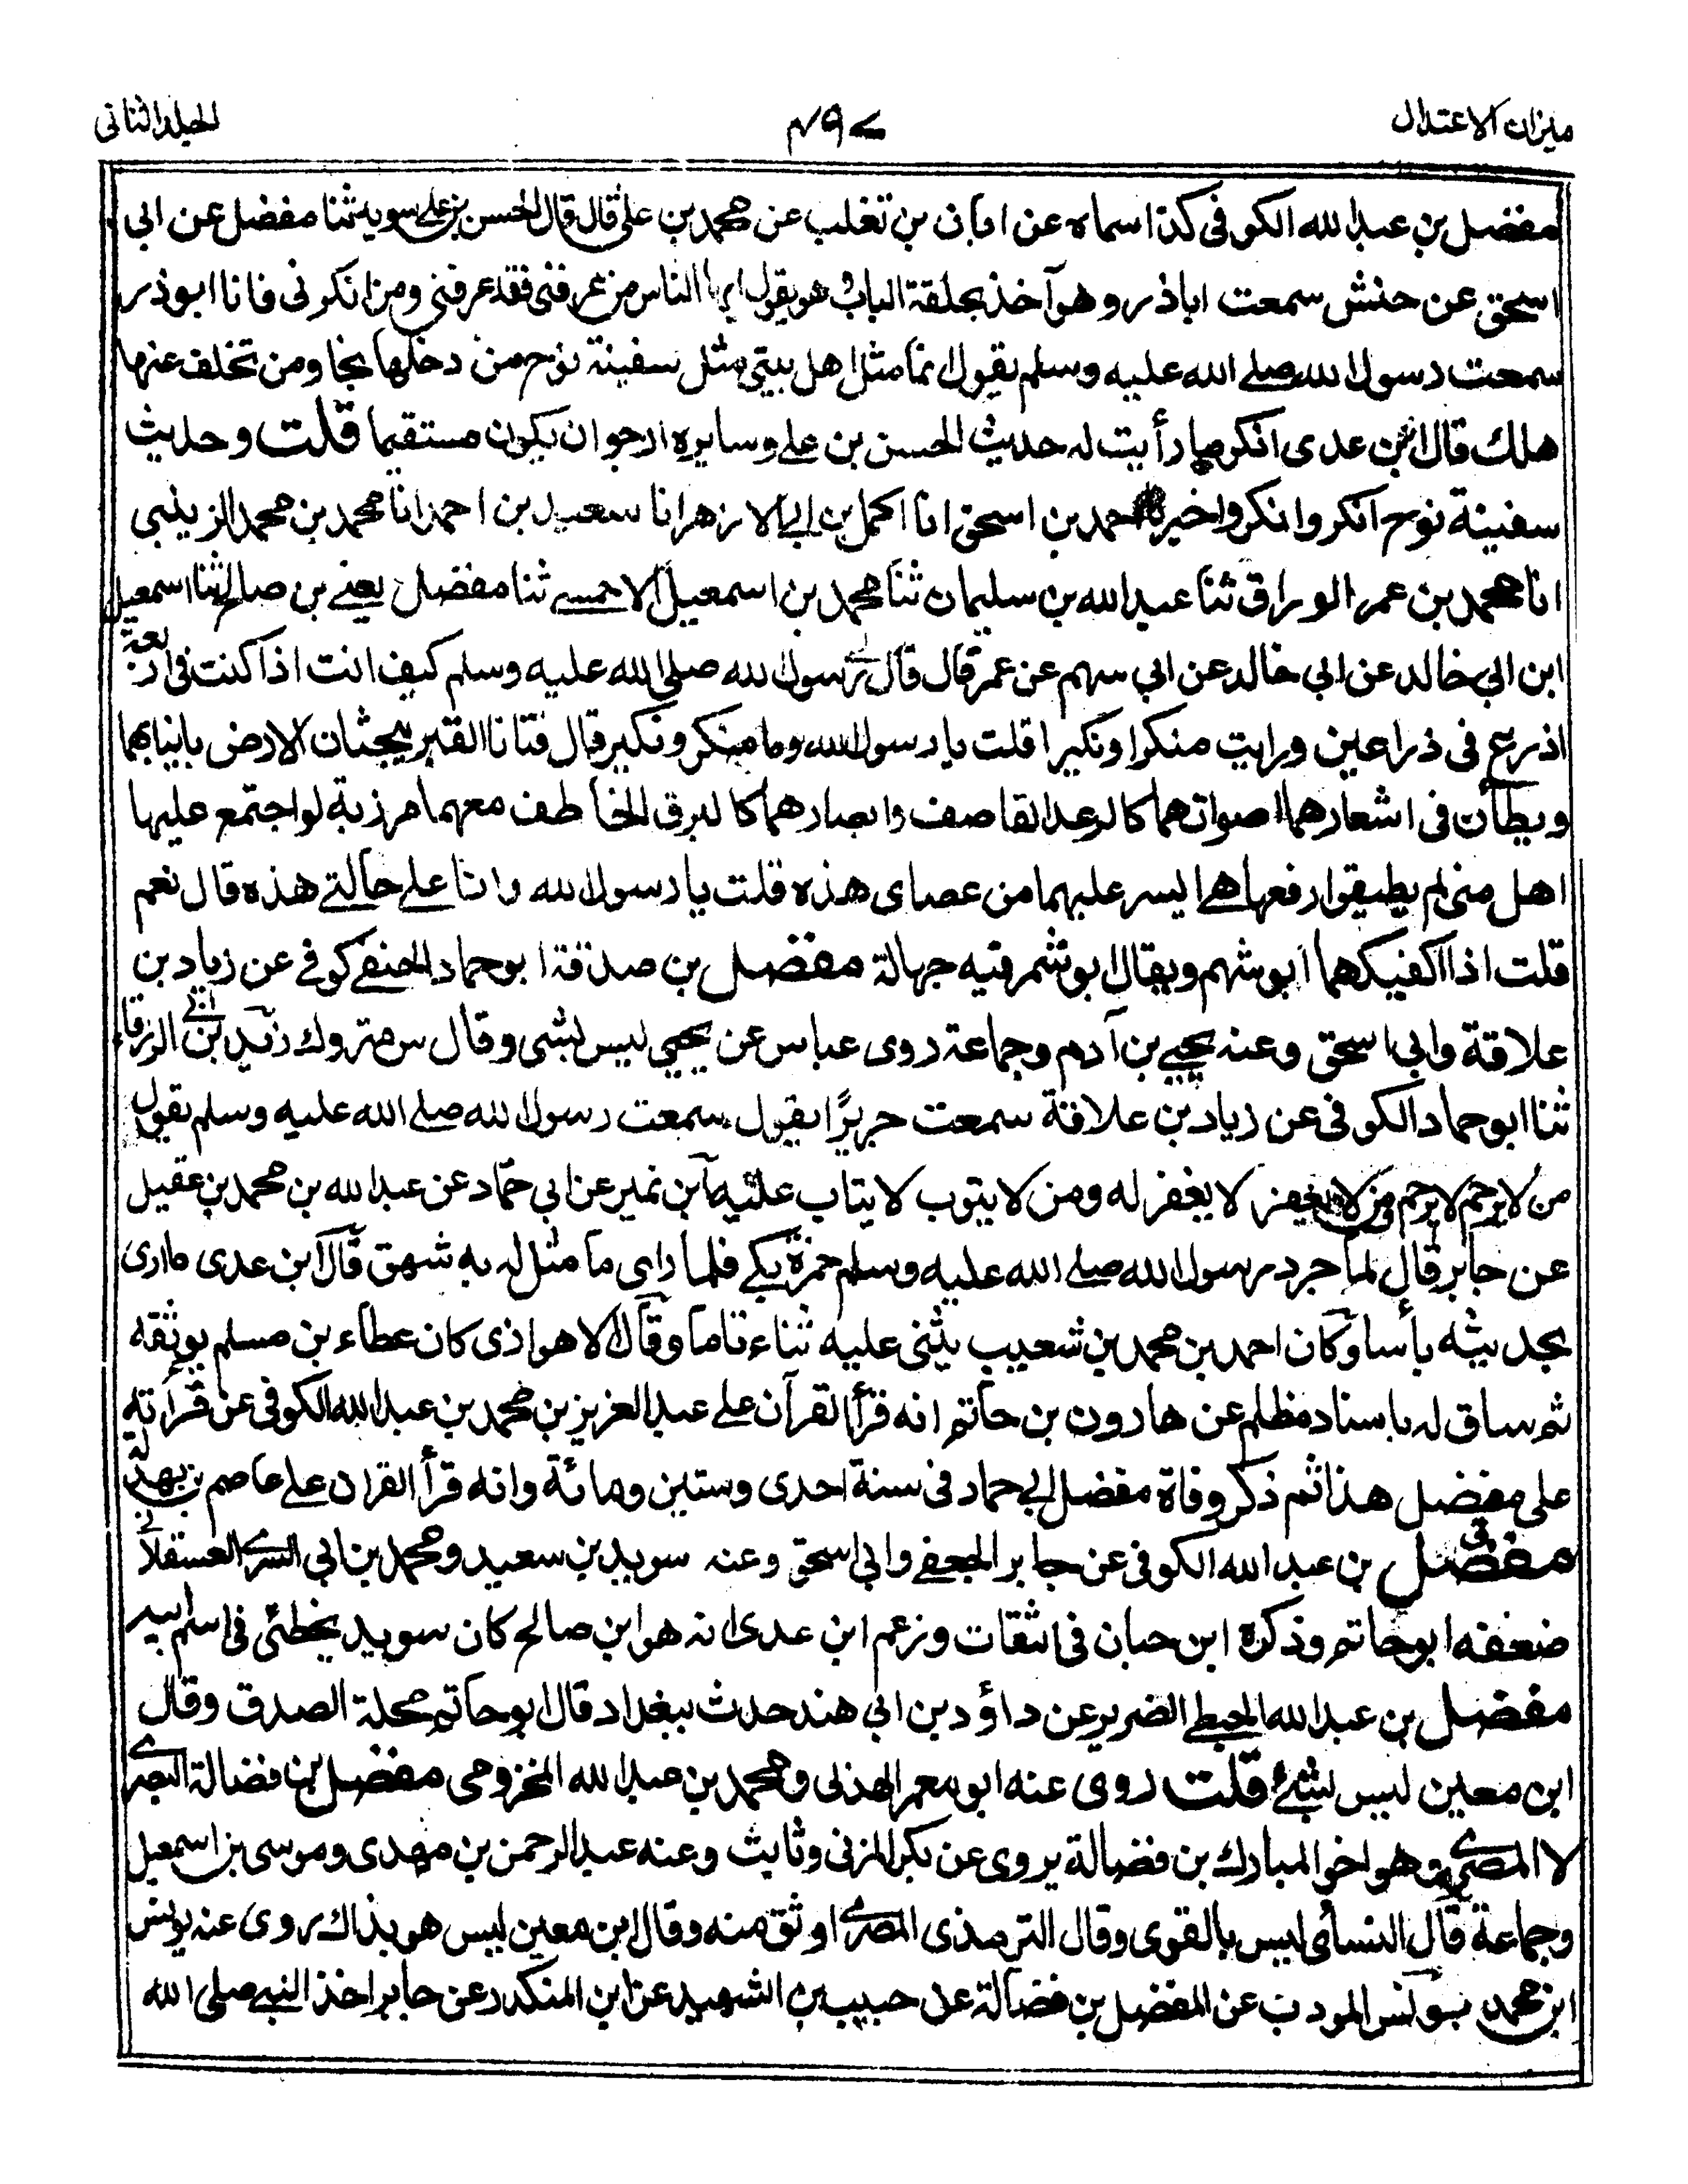 ميزان الاعتدال
٤٩٧
الجلد الثانى
مفضل بن عبد الله الكوفى كذا سماه عن ابان بن تغلب عن محمد بن على قال قال الحسن بن على سويد ثنا مفضل عن ابى
اسحق عن حنش سمعت اباذر وهو آخذ بحلقة الباب وهو يقول ايها الناس من عرفنى فقد عرفنى ومن انكرنى فانا ابوذر
سمعت رسول الله صلے الله عليه وسلم يقول انما مثل اهل بيتى مثل سفينة نوح من دخلها نجا ومن تخلف عنها
هلك قال ابن عدى انكر ما رأيت له حديث الحسن بن علے وسايره ارجو ان يكون مستقيما قلت وحديث
سفينة نوح انكر وانكر واخبرنا احمد بن اسحق انا اكمل بن ابى الازهر انا سعيد بن احمد انا محمد بن محمد الزينبى
انا محمد بن عمر الوراق ثنا عبد الله بن سليمان ثنا محمد بن اسمعيل الاحمسے ثنا مفضل يعنے بن صالح ثنا اسمعيل
ابن ابى خالد عن ابى خالد عن ابى سهم عن عمر قال قال لے رسول الله صلى الله عليه وسلم كيف انت اذا كنت فى اربعة
اذرع فى ذراعين ورايت منكرا ونكيرا قلت يا رسول الله وما منكر ونكير قال فتانا القبر يبحثان الارض بانيابهما
ويطآن فى اشعارهما اصواتهما كالرعد القاصف وابصارهما كالبرق الخاطف معهما مرزبة لو اجتمع عليها
اهل منى لم يطيقوا رفعها هى ايسر عليهما من عصاى هذه قلت يا رسول الله وانا علے حالتے هذه قال نعم
قلت اذا اكفيكهما ابو شهم ويقال ابو شمر فيه جهالة مفضل بن صدقة ابو حماد الحنفے كوفے عن زياد بن
علاقة وابى اسحق وعنه يحيے بن آدم وجماعة روى عباس عن يحيى ليس بشى وقال س متروك زيد بن ابى الزرقاء
ثنا ابو حماد الكوفى عن زياد بن علاقة سمعت جريرًا يقول سمعت رسول الله صلے الله عليه وسلم يقول
من لا يرحم لا يرحم ومن لا يغفر لا يغفر له ومن لا يتوب لا يتاب عليه ابن نمير عن ابى حماد عن عبد الله بن محمد بن عقيل
عن جابر قال لما جرد رسول الله صلے الله عليه وسلم حمزة بكے فلما راى ما مثل له به شهق قال ابن عدى ما ارى
بحديثه بأسا وكان احمد بن محمد بن شعيب يثنى عليه ثناء تاما وقال الاهوازى كان عطاء بن مسلم يوثقه
ثم ساق له باسناد مظلم عن هارون بن حاتم انه قرأ القرآن علے عبد العزيز بن محمد بن عبد الله الكوفى عن قرأته
على مفضل هذا ثم ذكر وفاة مفضل ابى حماد فى سنة احدى وستين ومائة وانه قرأ القران علے عاصم بن بهدلة
مفضل بن عبد الله الكوفى عن جابر الجعفے وابى اسحق وعنه سويد بن سعيد ومحمد بن ابى السرے العسقلانے
ضعفه ابو حاتم وذكره ابن حبان فى الثقات وزعم ابن عدى انه هو ابن صالح كان سويد يخطئى فى اسم ابيه
مفضل بن عبد الله الحبطے الضرير عن داؤد بن ابى هند حدث ببغداد قال ابو حاتم محلة الصدق وقال
ابن معين ليس بشئے قلت روى عنه ابو معمر الهذلى ومحمد بن عبد الله المخزومى مفضل بن فضالة البصرے
لا المصرے وهو اخو المبارك بن فضالة يروى عن بكر المزنى وثابت وعنه عبد الرحمن بن مهدى وموسى بن اسمعيل
وجماعة قال النسائى ليس بالقوى وقال الترمذى المصرے اوثق منه وقال ابن معين ليس هو بذاك روى عنه يونس
ابن محمد يونس المودب عن المفضل بن فضالة عن حبيب بن الشهيد عن ابن المنكدر عن جابر اخذ النبے صلى الله